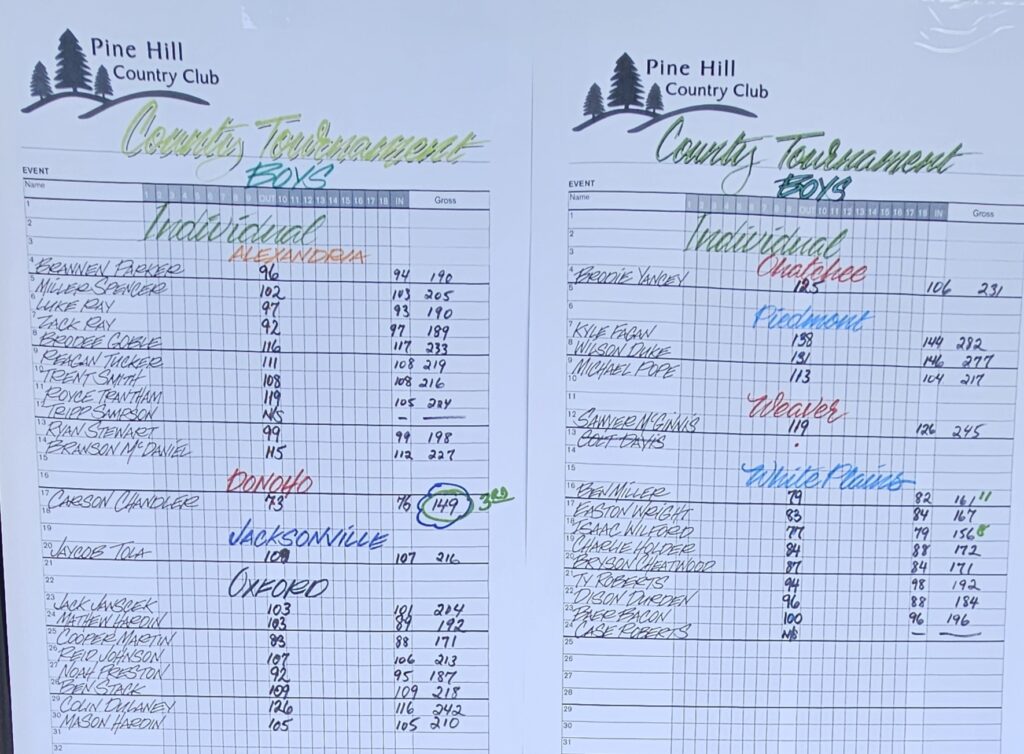 Pine Hill
Country Club
County Tournament
EVENT
BOYS
Name 1 2 3 4 5 6 7 8 9 OUT 10 11 12 13 14 15 16 17 18 IN Gross
1
2 Individual
3 ALEXANDRIA
4 BRANNEN PARKER 96 94 190
5 MILLER SPENCER 102 103 205
6 LUKE RAY 97 93 190
7 ZACK RAY 92 97 189
8 BRODEE GOBLE 116 117 233
9 REAGAN TUCKER 111 108 219
10 TRENT SMITH 108 108 216
11 ROYCE TRANTHAM 119 105 224
TRIPP SAMPSON N/S – —
13 RYAN STEWART 99 99 198
14 BRANSON McDANIEL 115 112 227
15
16 DONOHO
17 CARSON CHANDLER 73 76 149 3RD
18
19 JACKSONVILLE
20 JAYCOB TOLA 109 107 216
21
22 OXFORD
23 JACK JANSCEK 103 101 204
24 MATHEW HARDIN 103 89 192
25 COOPER MARTIN 83 88 171
26 REID JOHNSON 107 106 213
27 NOAH PRESTON 92 95 187
28 BEN STACK 109 109 218
29 COLIN DULANEY 126 116 242
30 MASON HARDIN 105 105 210
31
32
Pine Hill
Country Club
County Tournament
EVENT
BOYS
Name 1 2 3 4 5 6 7 8 9 OUT 10 11 12 13 14 15 16 17 18 IN Gross
1
2 Individual
3 Ohatchee
4 BRODIE YANCEY 125 106 231
5
6 Piedmont
7 KYLE FAGAN 138 144 282
8 WILSON DUKE 131 146 277
9 MICHAEL POPE 113 104 217
10
11 Weaver
12 SAWYER McGINNIS 119 126 245
13 COLT DAVIS
14
15 White Plains
16 BEN MILLER 79 82 161
17 EASTON WRIGHT 83 84 167
18 ISAAC WILFORD 77 79 156
19 CHARLIE HOLDER 84 88 172
20 BRYSON CHEATWOOD 87 84 171
21 TY ROBERTS 94 98 192
22 DISON DURDEN 96 88 184
23 BAER BACON 100 96 196
24 CASE ROBERTS N/S – —
25
26
27
28
29
30
31